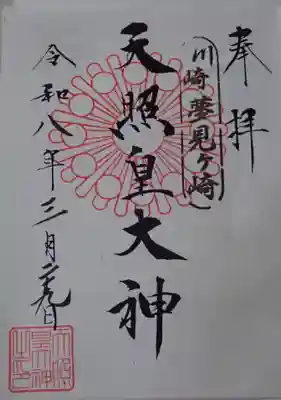 奉拝
川崎夢見ヶ崎
天照皇大神
令和八年三月二十九日